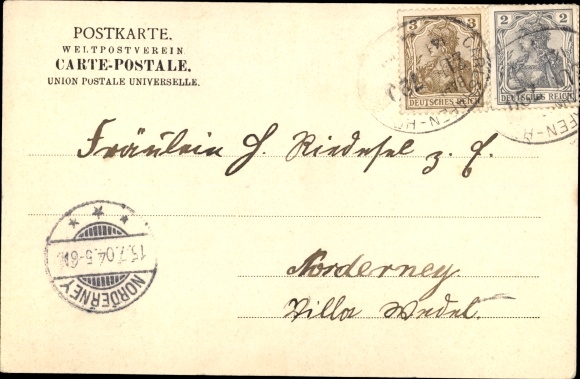 POSTKARTE.
WELTPOSTVEREIN
CARTE-POSTALE.
UNION POSTALE UNIVERSELLE.
3 3
DEUTSCHES REICH
2 2
DEUTSCHES REICH
Fräulein H. Riedesel z. E.
Norderney
Villa Wedel.
15.7.04.5-6N.
NORDERNEY